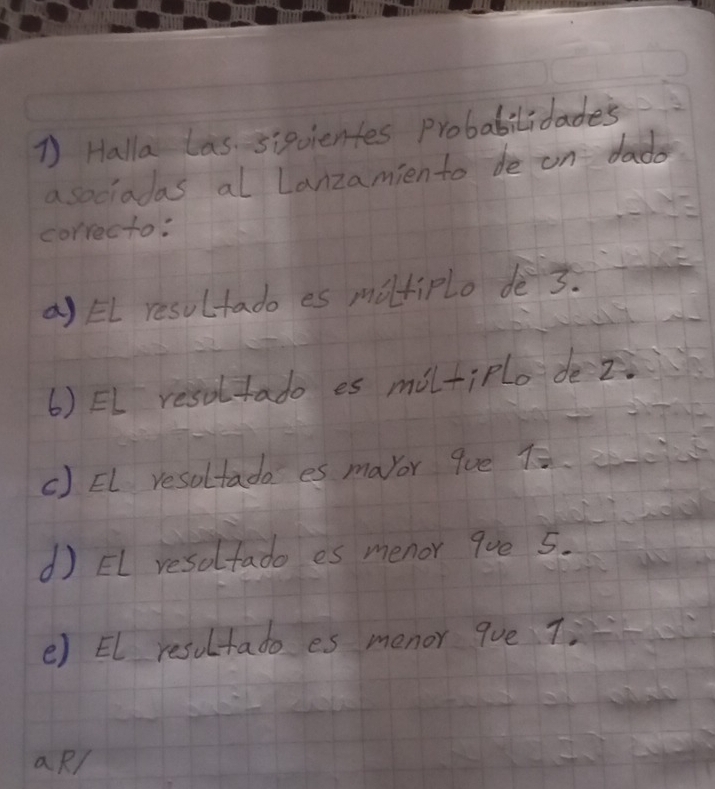 1) Halla Las siguientes probabilidades
asociadas al Lanzamiento de un dado
correcto:
a) EL resultado es múltiplo de 3.
b) EL resultado es múltiplo de 2.
c) EL resultado es mayor que 1.
d) EL resultado es menor que 5.
e) EL resultado es menor que 1.
a R/